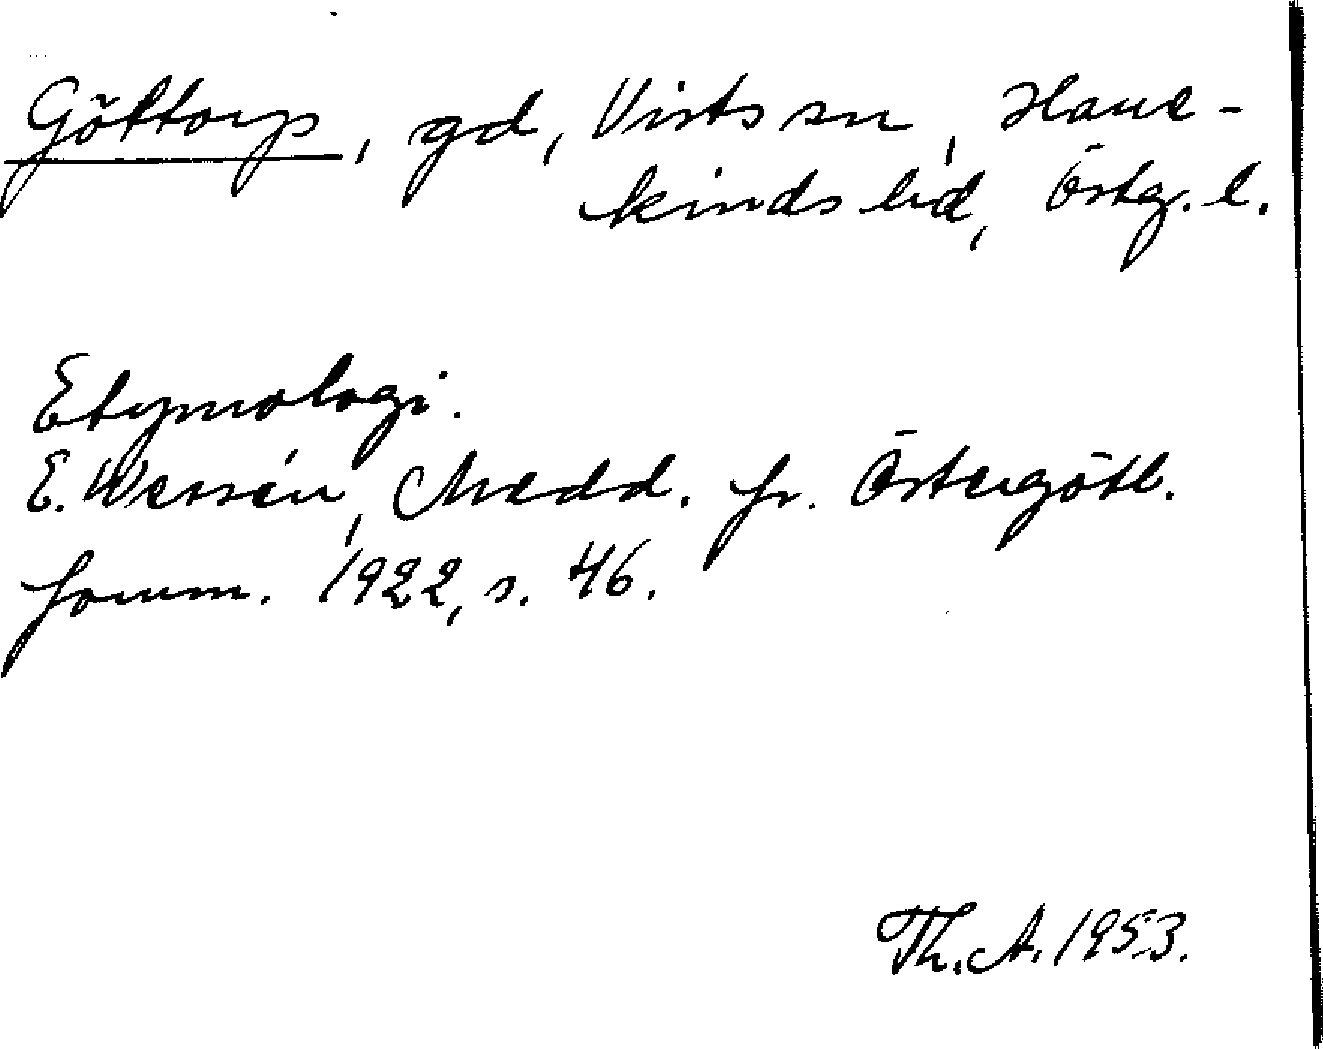 Göttorp, gd, Vists sn, Hane-
kinds hd, Östg. l.
Etymologi.
E. Wessén, Medd. fr. Östergötl.
fornm. 1922, s. 46.
Th. A. 1953.